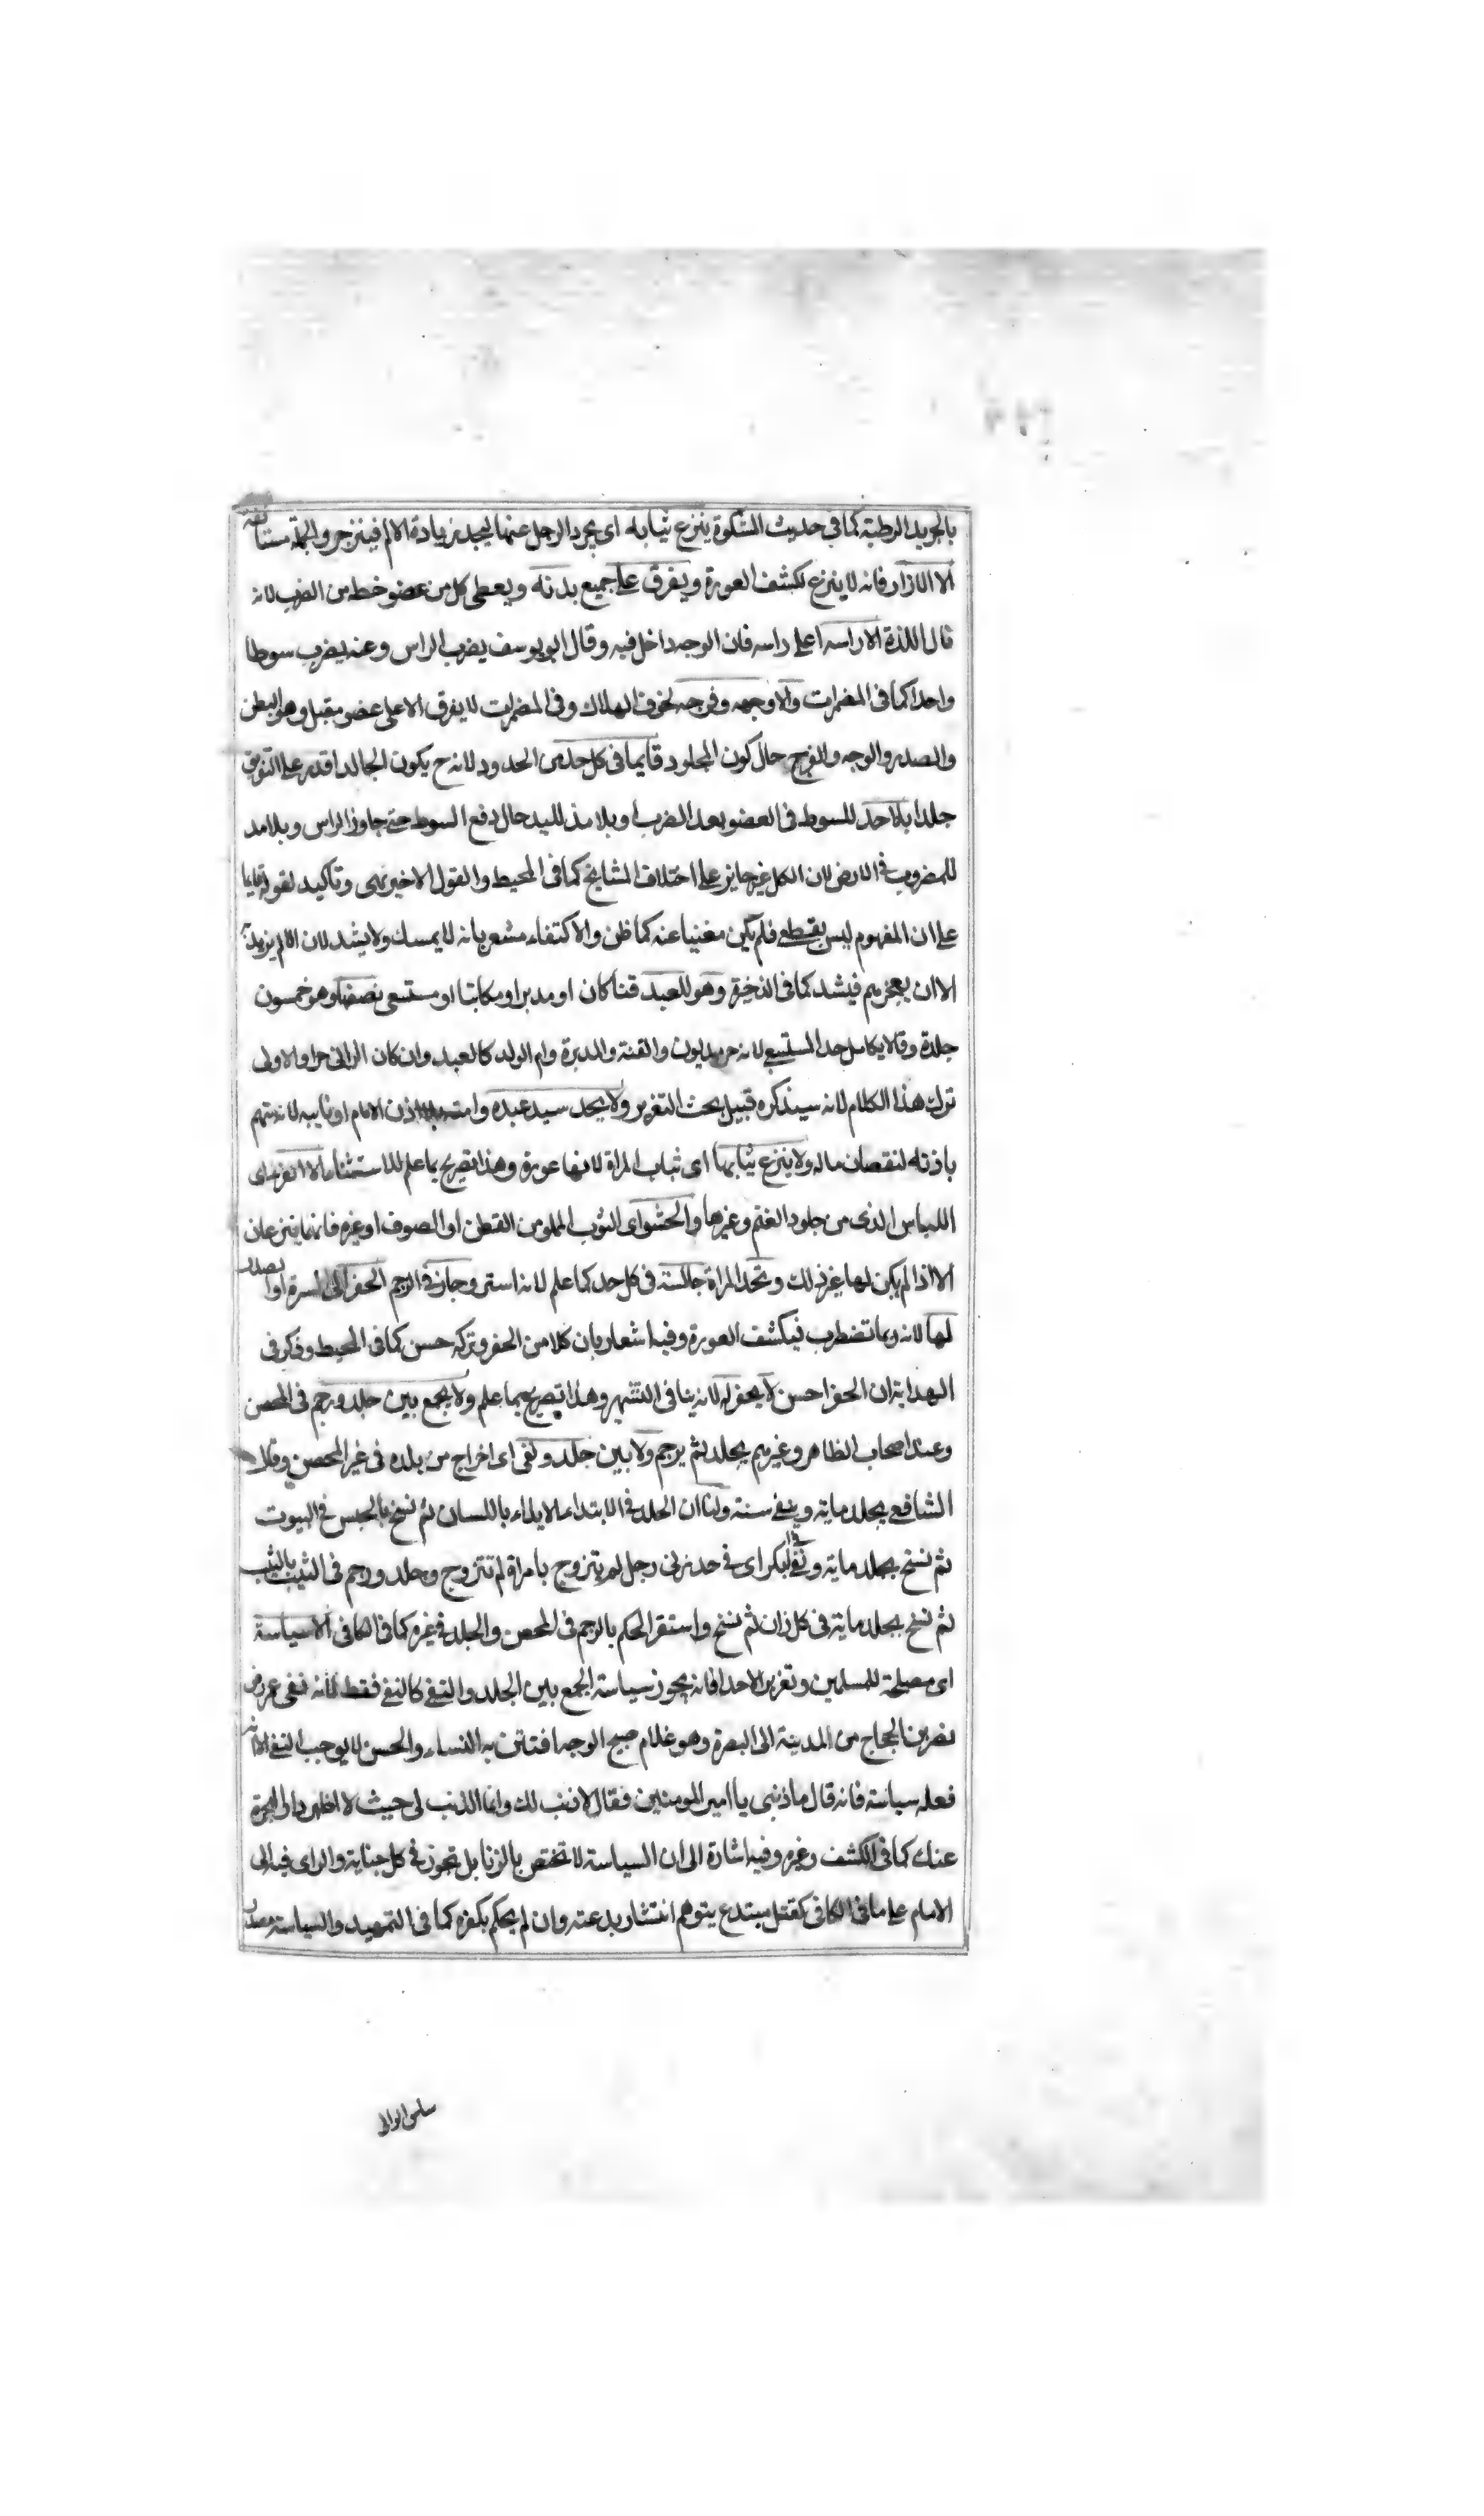 بالجريد الرطبة كما في حديث المشكوة ينزع ثيابه اى يجرد الرجل عنها ليجد زيادة الالم فينزجر والجملة مستانفة
الا الازار فانه لا ينزع لكشف العورة ويفرق على جميع بدنه ويعطى كل من عضو خطه من الضرب لانه
نال اللذة الا راسه اعلى راسه فان الوجه داخل فيه وقال ابو يوسف يضرب الراس وعنه يضرب سوطا
واحدا كما فى المضمرات والا وجهه وفرجه لخوف الهلاك وفى المضمرات لا يفرق الا على عضو مقبل وهو البطن
والصدر والوجه والفرج حال كون المجلود قايما فى كل حد من الحدود لانه ح يكون الجالد اقدر على التفريق
جلدا بلا مد للسوط فى العضو بعد الضرب او بلا مد لليد حال رفع السوط حتى جاوز الراس وبلا مد
للمضروب فى الارض لان الكل غير جايز على اختلاف المشايخ كما فى المحيط والقول الاخير نهى وتاكيد لقوله قايما
على ان المفهوم ليس بقطعى فلم يكن مغنيا عنه كما ظن والاكتفاء مشعر بانه لا يمسك ولا يشد لان الالم يزيد به
الا ان يعجزهم فيشد كما فى الذخيرة وهو للعبد قنا كان او مدبرا ومكاتبا او مستسعى نصفها وهو خمسون
جلدة وقالا يكامل حد المستسعى لانه حر مديون والقنة والمدبرة وام الولد كالعبد وان كان الزانى حرا والاولى
ترك هذا الكلام لانه سيذكره قبيل بحث التعزير ولا يحد سيد عبده وامته بلا اذن الامام او نايبه لانه متهم
باذنه لنقصان ماله ولا ينزع ثيابها اى ثياب المراة لانها عورة وهذا تصريح بما علم للاستثناء الا الفرو اى
اللباس الذى من جلود الغنم وغيرها والحشو اى الثوب المملو من القطن او الصوف او غيره فانهما ينزعان
الا اذا لم يكن لها غير ذلك وتحد المراة جالسة فى كل حد كما علم لانه استر وجاز فى الرجم الحفر الى السرة او الصدر
لها لانه ربما تضطرب فيكشف العورة وفيه اشعار بان كلا من الحفر وتركه حسن كما فى المحيط وذكر فى
الهداية ان الحفر احسن لا يحفر له لانه ينافى التشهير وهذا تصريح بما علم ولا يجمع بين جلد ورجم فى المحصن
وعند اصحاب الظاهر وغيرهم يجلد ثم يرجم ولا بين جلد ونفى اى اخراج من بلده فى غير المحصن وقال
الشافعى يجلد ماية وينفى سنة ولنا ان الحد فى الابتداء الايذاء باللسان ثم نسخ بالحبس فى البيوت
ثم نسخ بجلد ماية ونفى فى البكر اى فى حد زنى رجل لم يتزوج بامراة لم تتزوج وجلد ورجم فى الثيب بالثيب
ثم نسخ بجلد ماية فى كل زان ثم نسخ واستقر الحكم بالرجم فى المحصن والجلد فى غيره كما فى الكافى الا سياسة
اى مصلحة للمسلمين وتعزيرا لا حدا فانه يجوز سياسة الجمع بين الجلد والنفى كالنفى فقط لانه نفى عمر رض
نصر بن الحجاج من المدينة الى البصرة وهو غلام صبيح الوجه افتتن به النساء والحسن لا يوجب النفى الا انه
فعله سياسة فانه قال ما ذنبى يا امير المومنين فقال لا ذنب لك وانما الذنب لى حيث لا اطهر دار الهجرة
عنك كما فى الكشف وغيره وفيه اشارة الى ان السياسة لا تختص بالزنا بل تجوز فى كل جناية والراى فيه الى
الامام على ما فى الكافى كقتل مبتدع يتوهم انتشار بدعته وان لم يحكم بكفره كما فى التمهيد والسياسة مصدر